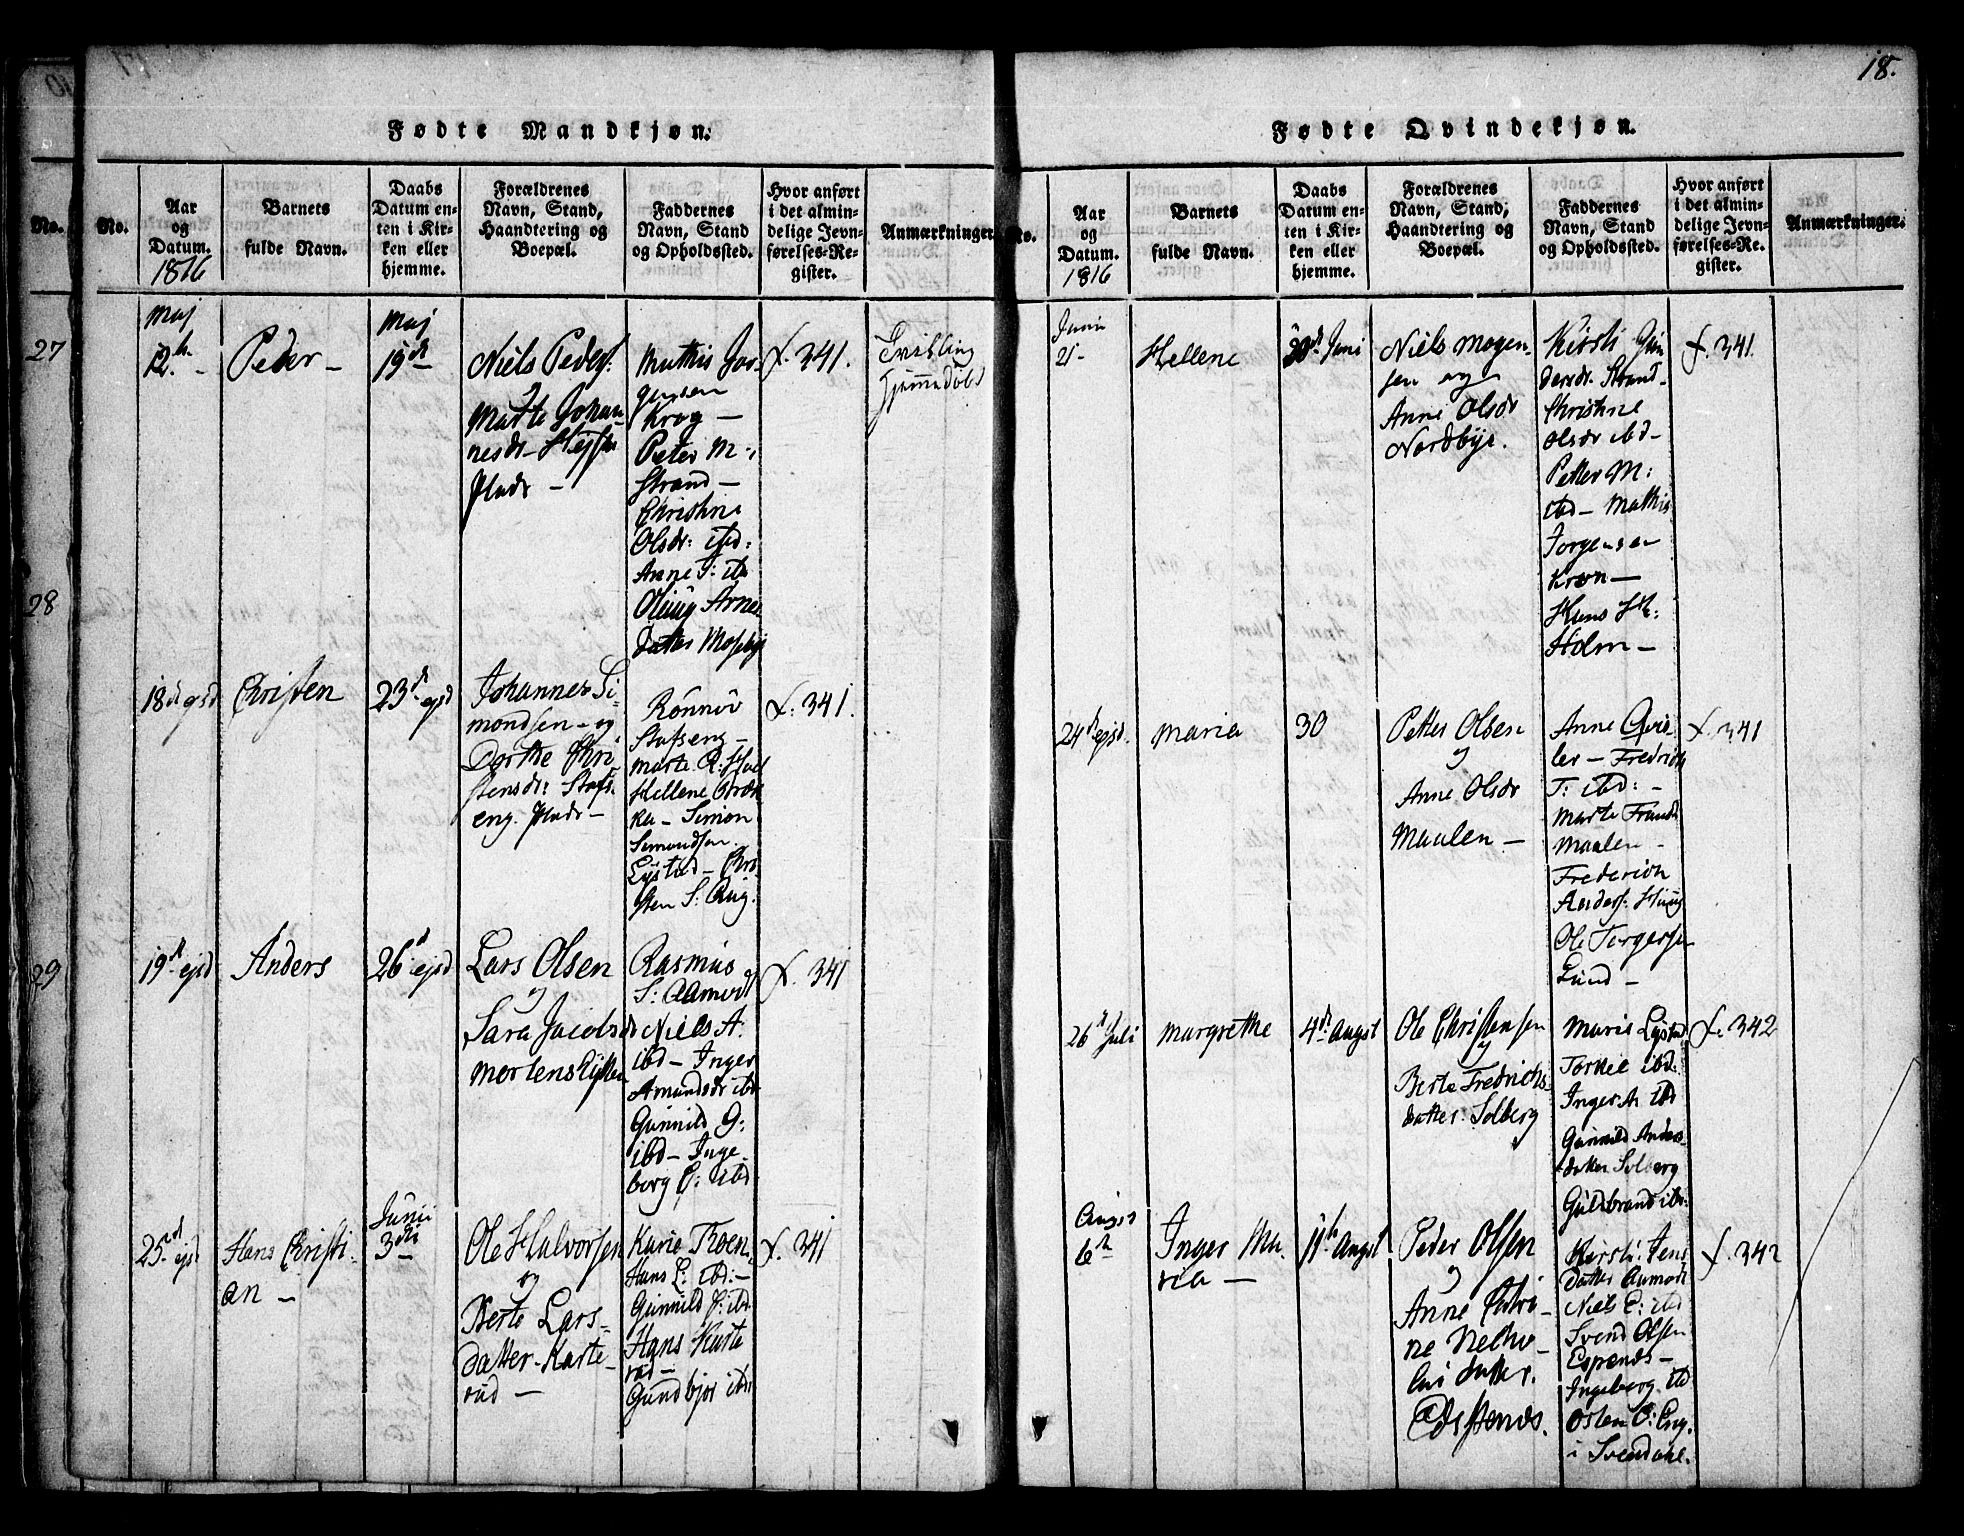 18.
Fødte Mandkjøn.
No.
No.
Aar
og
Datum.
1816
Barnets
fulde Navn.
Daabs
Datum en-
ten i Kir-
ken eller
hjemme.
Forældrenes
Navn, Stand,
Haandtering og
Boepæl.
Faddernes
Navn, Stand
og Opholdssted.
Hvor anført
i det almin-
delige Jevn-
førelses-Re-
gister.
Anmærkninger.
27
28
29
Maj
12
Peder
Maj
19d
Niels Peders.
Marte Johan-
nesdr
Pladr
Mathis Jor-
gensen
Krog
Peter M:
Strand
Christine
Olsdr: ibd:
Anne
Arnes
Datter Mosebye
f. 341.
Tvilling
hjemmedøbt
18d ejsd
Christen
23d ejsd
Johannes Si-
mondsen og
Dorthe Chri-
stensdr: Stafs-
eng. Pladr
Rønnov
Stafseng
Marte
Hellene
Simon
Simondsen
Lystad Chri-
sten S:
f: 341.
19d ejsd
Anders
26d ejsd
Lars Olsen
Sara Jacobsd
Mortens
Rasmus
S: Aamodt
Niels A.
ibd Inger
Amundsdr ibd
Gunnild G:
ibd Inge-
borg
f. 341
25d ejsd
Hans Christi-
an
Junii
3die
Ole Halvorsen
og
Berte Lars-
datter Karte-
rud
Karie Moen
Hans L: ibd:
Gunnild ibd
Hans Karte
rud
Gundbjor ibd
f. 341
Fødte Qvindekjøn.
No.
Aar
og
Datum.
1816
Barnets
fulde Navn.
Daabs
Datum en-
ten i Kir-
ken eller
hjemme.
Forældrenes
Navn, Stand,
Haandtering og
Boepæl.
Faddernes
Navn, Stand
og Opholdssted.
Hvor anført
i det almin-
delige Jevn-
førelses-Re-
gister.
Anmærkninger.
Junii
21
Hellene
30d Juni
Niels Mogen-
sen og
Anne Olsdr
Nordbye.
Kirsti Gun
dersdr. Strand
Christine
Olsdr ibd
Petter M:
ibd Mathis
Jorgensen
Hans H:
Holm
f. 341
24d ejsd.
Maria
30
Petter Olsen
Anne Olsdr
Maalen
Anne Qvis-
ler Fredrich
T: ibd:
Marte Frandr
Maalen
Frederich
Anders:
Ole Torgersen
Lund
f. 341
26d Juli
Margrethe
4d Augst
Ole Christensen
Berte Fredrichs-
datter. Solberg
Maris Lystad
Torkel ibd:
Inger A ibd
Gunnild Anders-
datter Solberg
Guldbrand ibd
f. 342
August
6
Inger Ma-
ria
11 Augst
Peder Olsen
Anne Catri-
ne
datter.
Kirsti Jens
datter Aamodt
Niels E: ibd
Svend Olsen
Espenæs
Ingeborg ibd
Osten O: Eng
i Svendake.
f. 342